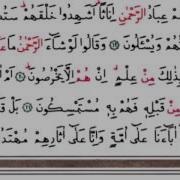 هُمْ عِبَادُ الرَّحْمٰنِ اِنَاثًا اَشَهِدُوا خَلْقَهُمْ سَتُ
هُمْ وَيُسْـَٔلُونَ ١٩ وَقَالُوا لَوْ شَاءَ الرَّحْمٰنُ مَا
لِكَ مِنْ عِلْمٍ اِنْ هُمْ اِلَّا يَخْرُصُونَ ٢٠ اَ
مِنْ قَبْلِهِ فَهُمْ بِهِ مُسْتَمْسِكُونَ ٢١ بَلْ قَ
اٰبَاءَنَا عَلٰى اُمَّةٍ وَاِنَّا عَلٰى اٰثَارِهِمْ مُهْتَدُ